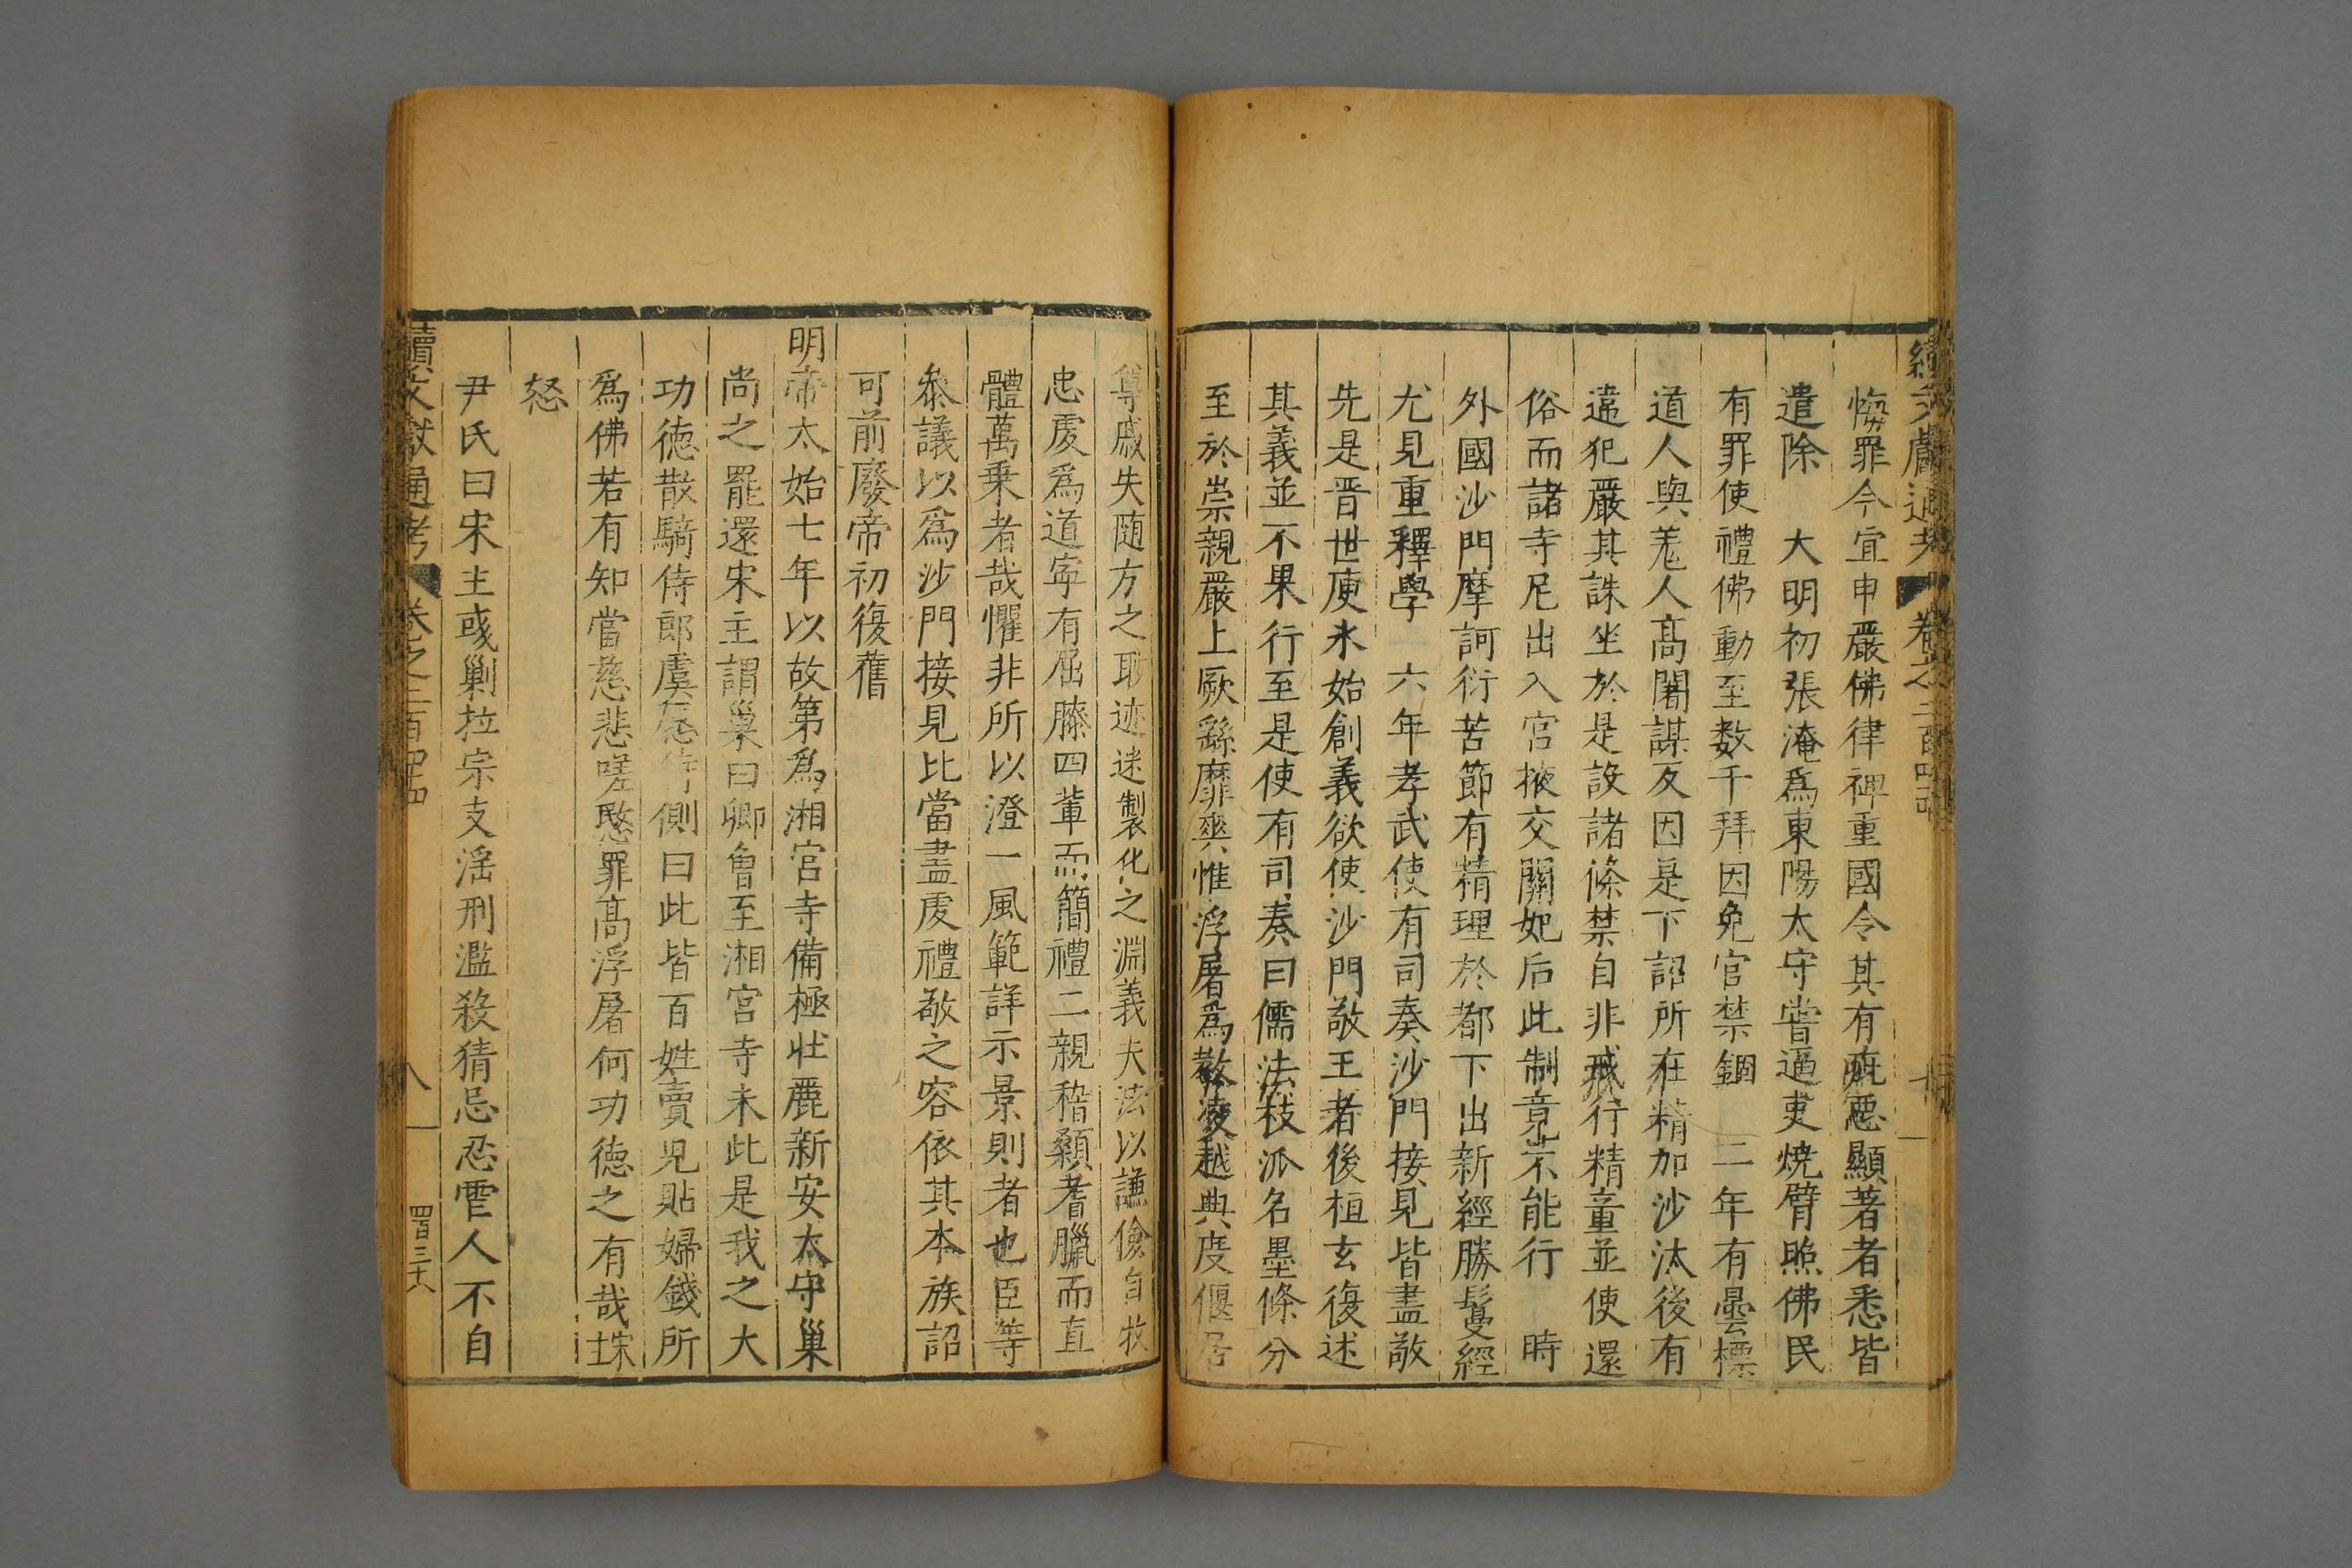 悔罪今宜申嚴佛律禆重國令其有疵惡顯著者悉皆
遣除　大明初張淹爲東陽太守嘗逼吏燒臂照佛民
有罪使禮佛動至数千拜因免官禁錮　二年有曇標
道人與羗人高闍謀反因是下詔所在精加沙汰後有
違犯嚴其誅坐於是設諸條禁自非戒行精童並使還
俗而諸寺尼出入宫掖交關妃后此制竟不能行　時
外國沙門摩訶衍苦節有精理於都下出新經勝鬘經
尤見重釋學　六年孝武使有司奏沙門接見皆盡敬
先是晋世庾氷始創義欲使沙門敬王者後桓玄復述
其義並不果行至是使有司奏曰儒法枝派名墨條分
至於崇親嚴上厥繇靡爽惟浮屠爲教凌越典度偃居
尊戚失随方之耿迹迷製化之淵義夫法以謙儉自牧
忠虔爲道寧有屈膝四輩而簡禮二親稽顙耆臘而直
體萬乗者哉懼非所以澄一風範詳示景則者也臣等
叅議以爲沙門接見比當盡虔禮敬之容依其本族詔
可前廢帝初復舊
明帝太始七年以故第爲湘宮寺備極壯麗新安太守巢
尚之罷還宋主謂巢曰卿曾至湘宮寺未此是我之大
功徳散騎侍郎虞愿侍側曰此皆百姓賣兒貼婦錢所
爲佛若有知當慈悲嗟愍罪高浮屠何功徳之有哉宋主
怒
尹氏曰宋主彧剿拉宗支滛刑濫殺猜忌忍虐人不自
續文獻通考　卷之二百四十四
八
四百三十六